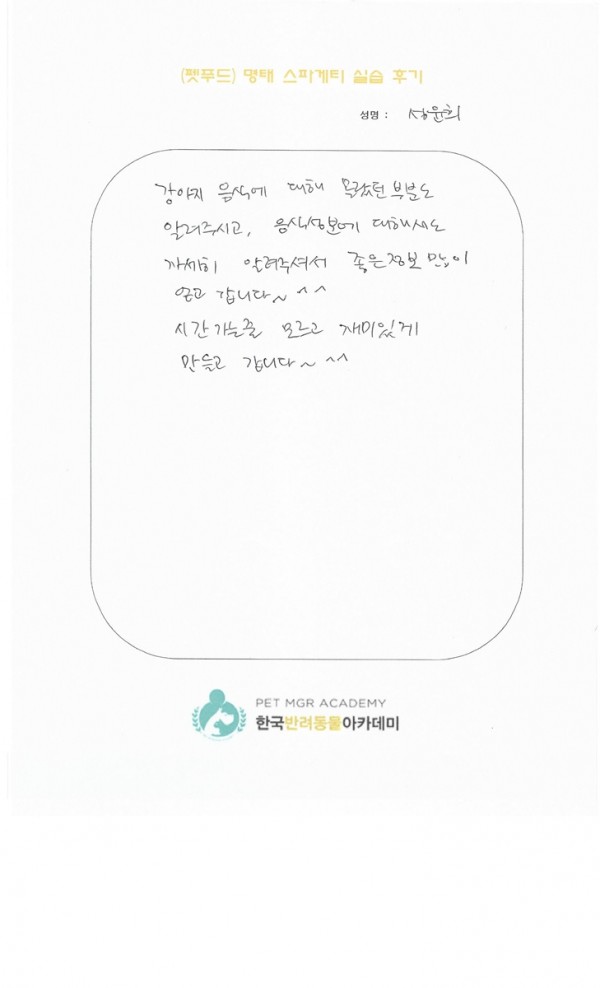 (펫푸드) 명태 스파게티 실습 후기
성명 : 성윤희
강아지 음식에 대해 몰랐던 부분도
알려주시고, 음식정보에 대해서도
자세히 알려주셔서 좋은정보 많이
얻고 갑니다~ ^^
시간가는줄 모르고 재미있게
만들고 갑니다~ ^^
PET MGR ACADEMY
한국반려동물아카데미